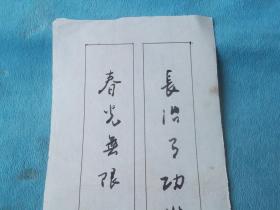 長治了功
春光無限